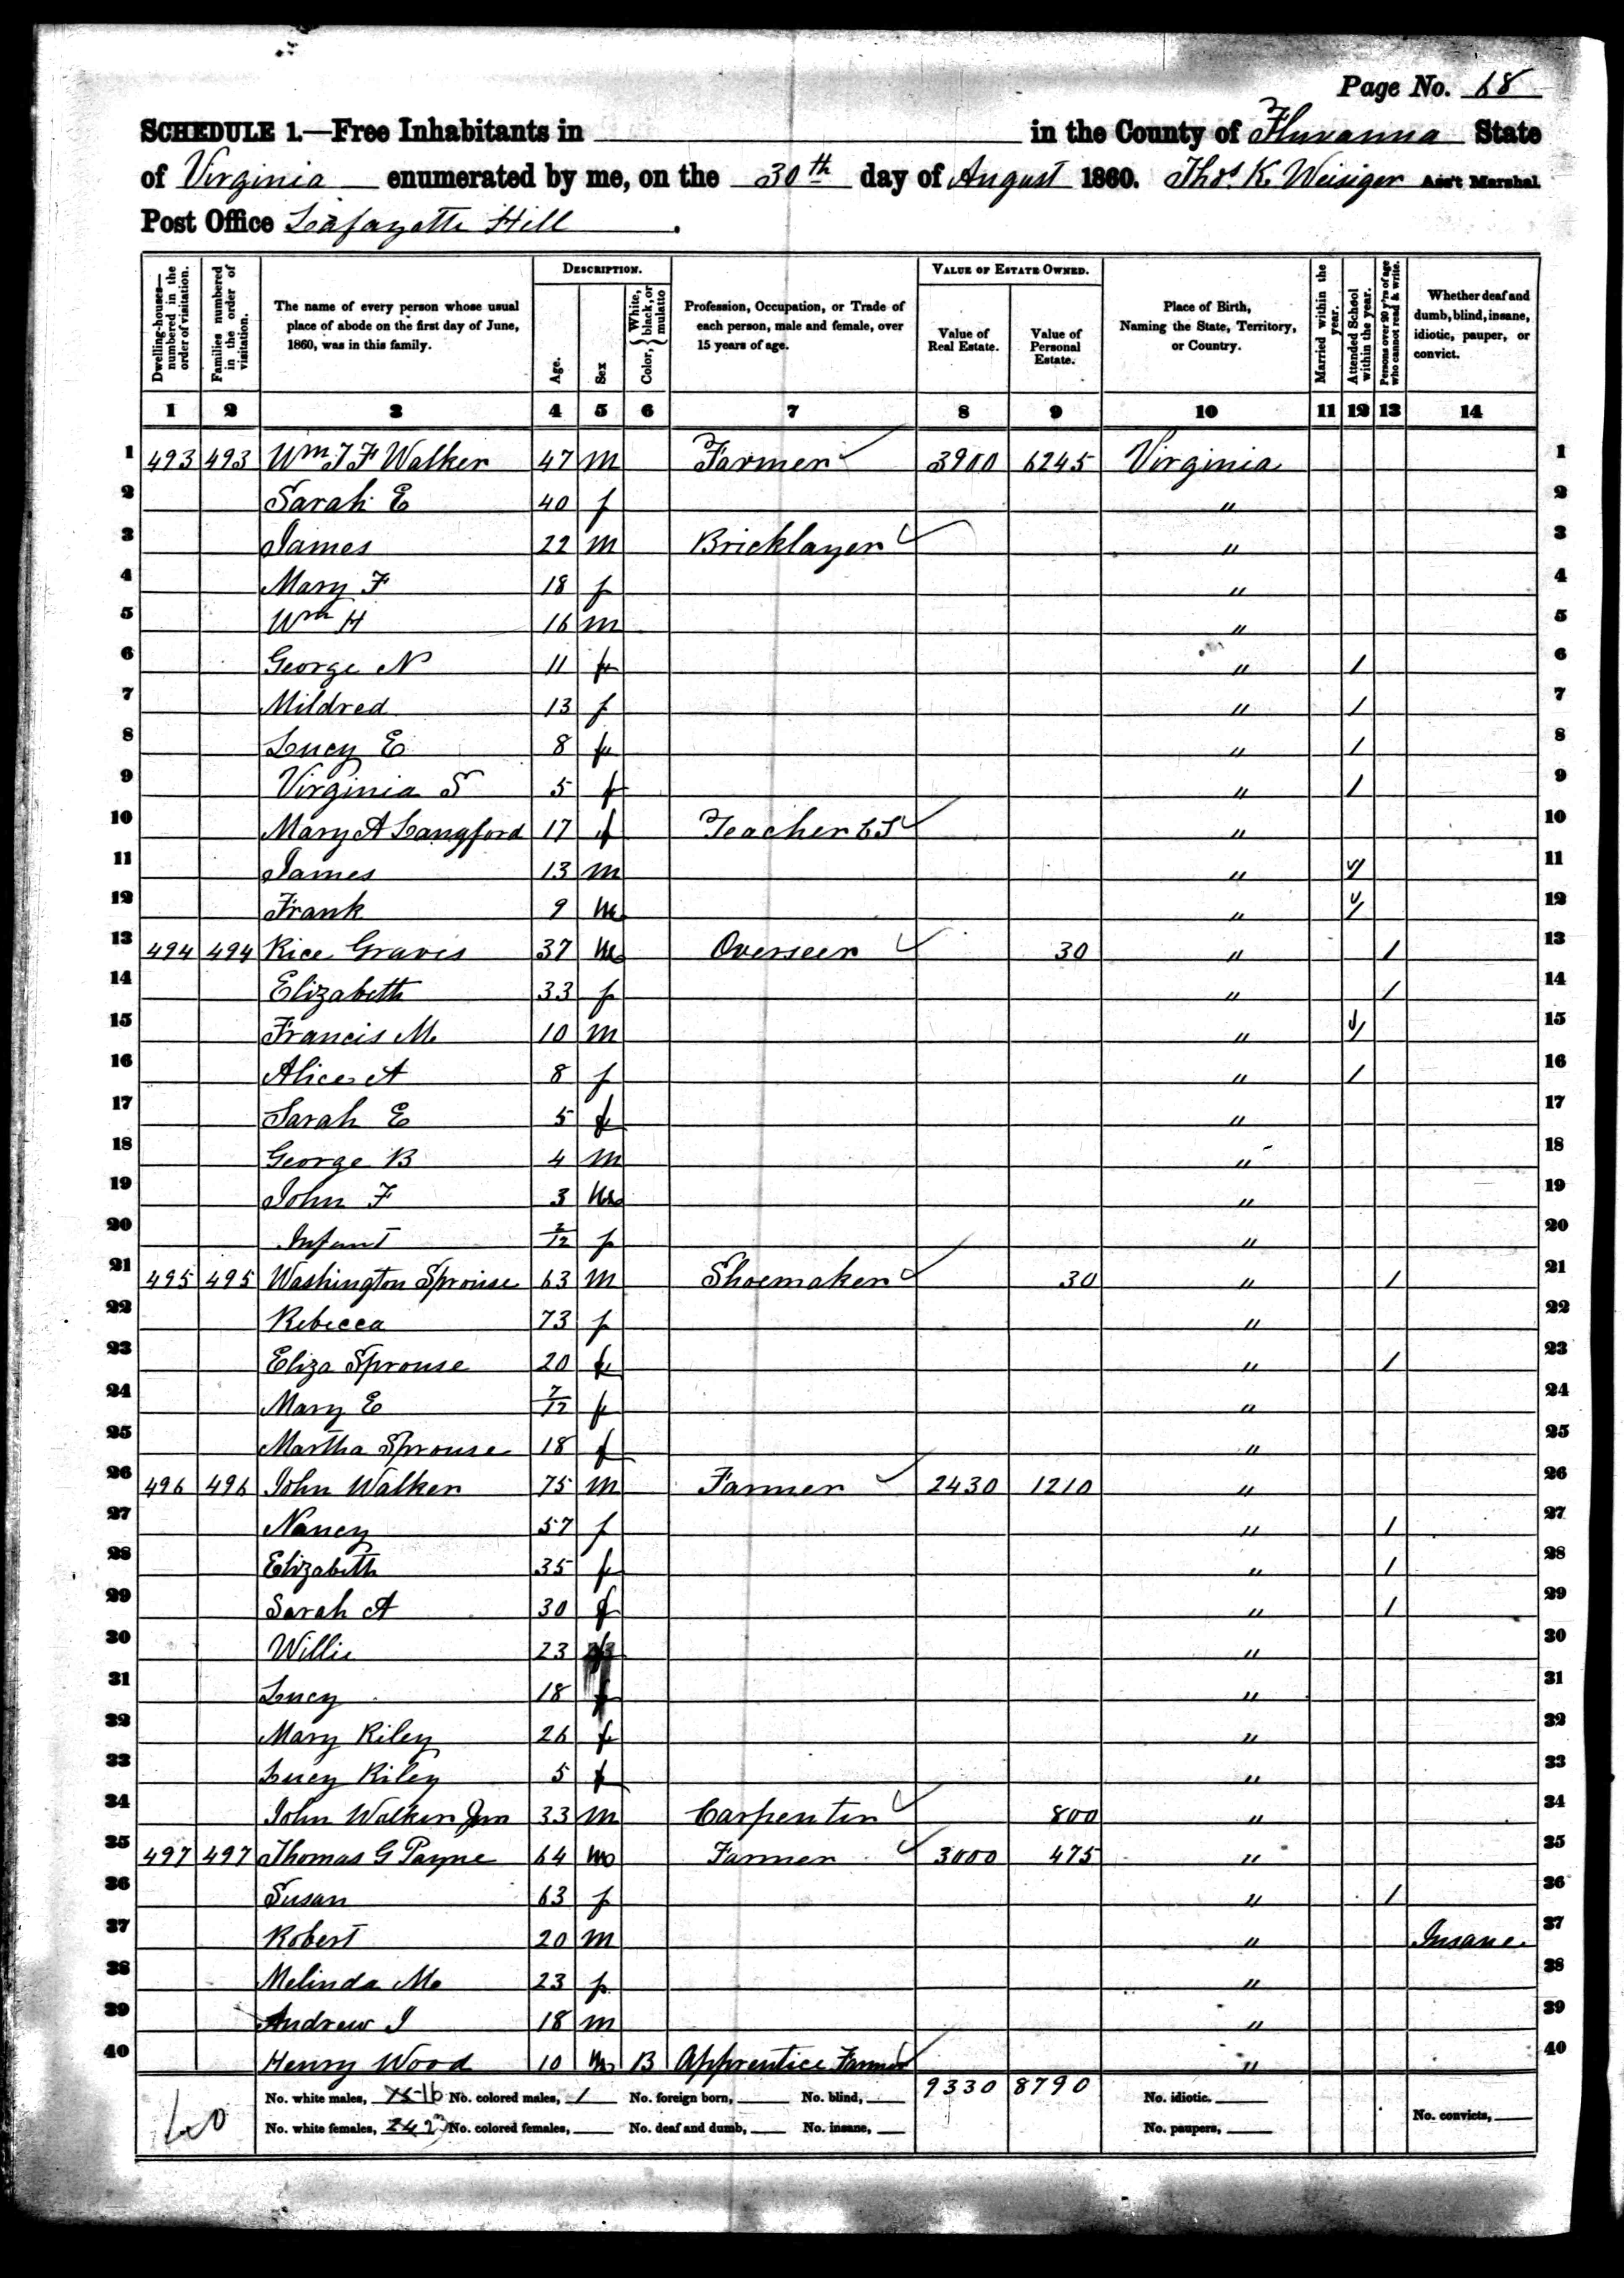 Page No. 68
SCHEDULE 1.—Free Inhabitants in in the County of Fluvanna State
of Virginia enumerated by me, on the 30th day of August 1860. Thos. K. Weisiger Ass't Marshal
Post Office Lafayette Hill.
Dwelling-houses—numbered in the order of visitation. Families numbered in the order of visitation. The name of every person whose usual place of abode on the first day of June, 1860, was in this family. DESCRIPTION. Age. Sex Color, White, black, or mulatto Profession, Occupation, or Trade of each person, male and female, over 15 years of age. VALUE OF ESTATE OWNED. Value of Real Estate. Value of Personal Estate. Place of Birth, Naming the State, Territory, or Country. Married within the year. Attended School within the year. Persons over 20 y'rs of age who cannot read & write. Whether deaf and dumb, blind, insane, idiotic, pauper, or convict.
1 2 3 4 5 6 7 8 9 10 11 12 13 14
1 493 493 Wm J F Walker 47 m Farmer 3900 6245 Virginia 1
2 Sarah E 40 f " 2
3 James 22 m Bricklayer " 3
4 Mary F 18 f " 4
5 Wm H 16 m " 5
6 George N 11 " / 6
7 Mildred 13 f " / 7
8 Lucy E 8 f " / 8
9 Virginia S 5 f " / 9
10 Mary A Langford 17 f Teacher " 10
11 James 13 m " / 11
12 Frank 9 m " / 12
13 494 494 Rice Graves 37 m Overseer 30 " / 13
14 Elizabeth 33 f " / 14
15 Francis M 10 m " / 15
16 Alice A 8 f " / 16
17 Sarah E 5 f " 17
18 George B 4 m " 18
19 John F 3 m " 19
20 Infant 2/12 f " 20
21 495 495 Washington Sprouse 63 m Shoemaker 30 " / 21
22 Rebecca 73 f " 22
23 Eliza Sprouse 20 f " / 23
24 Mary E 7/12 f " 24
25 Martha Sprouse 18 f " 25
26 496 496 John Walker 75 m Farmer 2430 1210 " 26
27 Nancy 57 f " / 27
28 Elizabeth 35 f " / 28
29 Sarah A 30 f " / 29
30 Willie 23 " 30
31 Lucy 18 f " 31
32 Mary Riley 26 f " 32
33 Lucy Riley 5 f " 33
34 John Walker Jun 33 m Carpenter 800 " 34
35 497 497 Thomas G Payne 64 m Farmer 3000 475 " 35
36 Susan 63 f " / 36
37 Robert 20 m " Insane 37
38 Melinda M 23 f " 38
39 Andrew J 18 m " 39
40 Henry Wood 10 m B Apprentice Farmer " 40
No. white males, 16 No. colored males, 1 No. foreign born, No. blind, 9330 8790 No. idiotic.
40 No. white females, 23 No. colored females, No. deaf and dumb, No. insane, No. paupers, No. convicts,